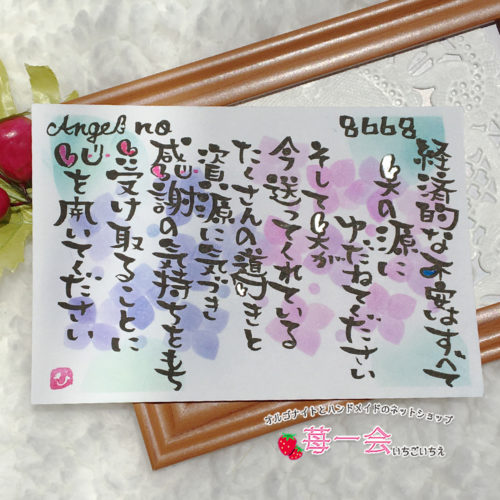 Angel no 8668
経済的な不安はすべて
天の源に
ゆだねてください
そして天が
今送ってくれている
たくさんの導きと
資源に気づき
感謝の気持ちを持ち
受け取ることに
心を開いてください
オルゴナイトとハンドメイドのネットショップ
苺一会いちごいちえ